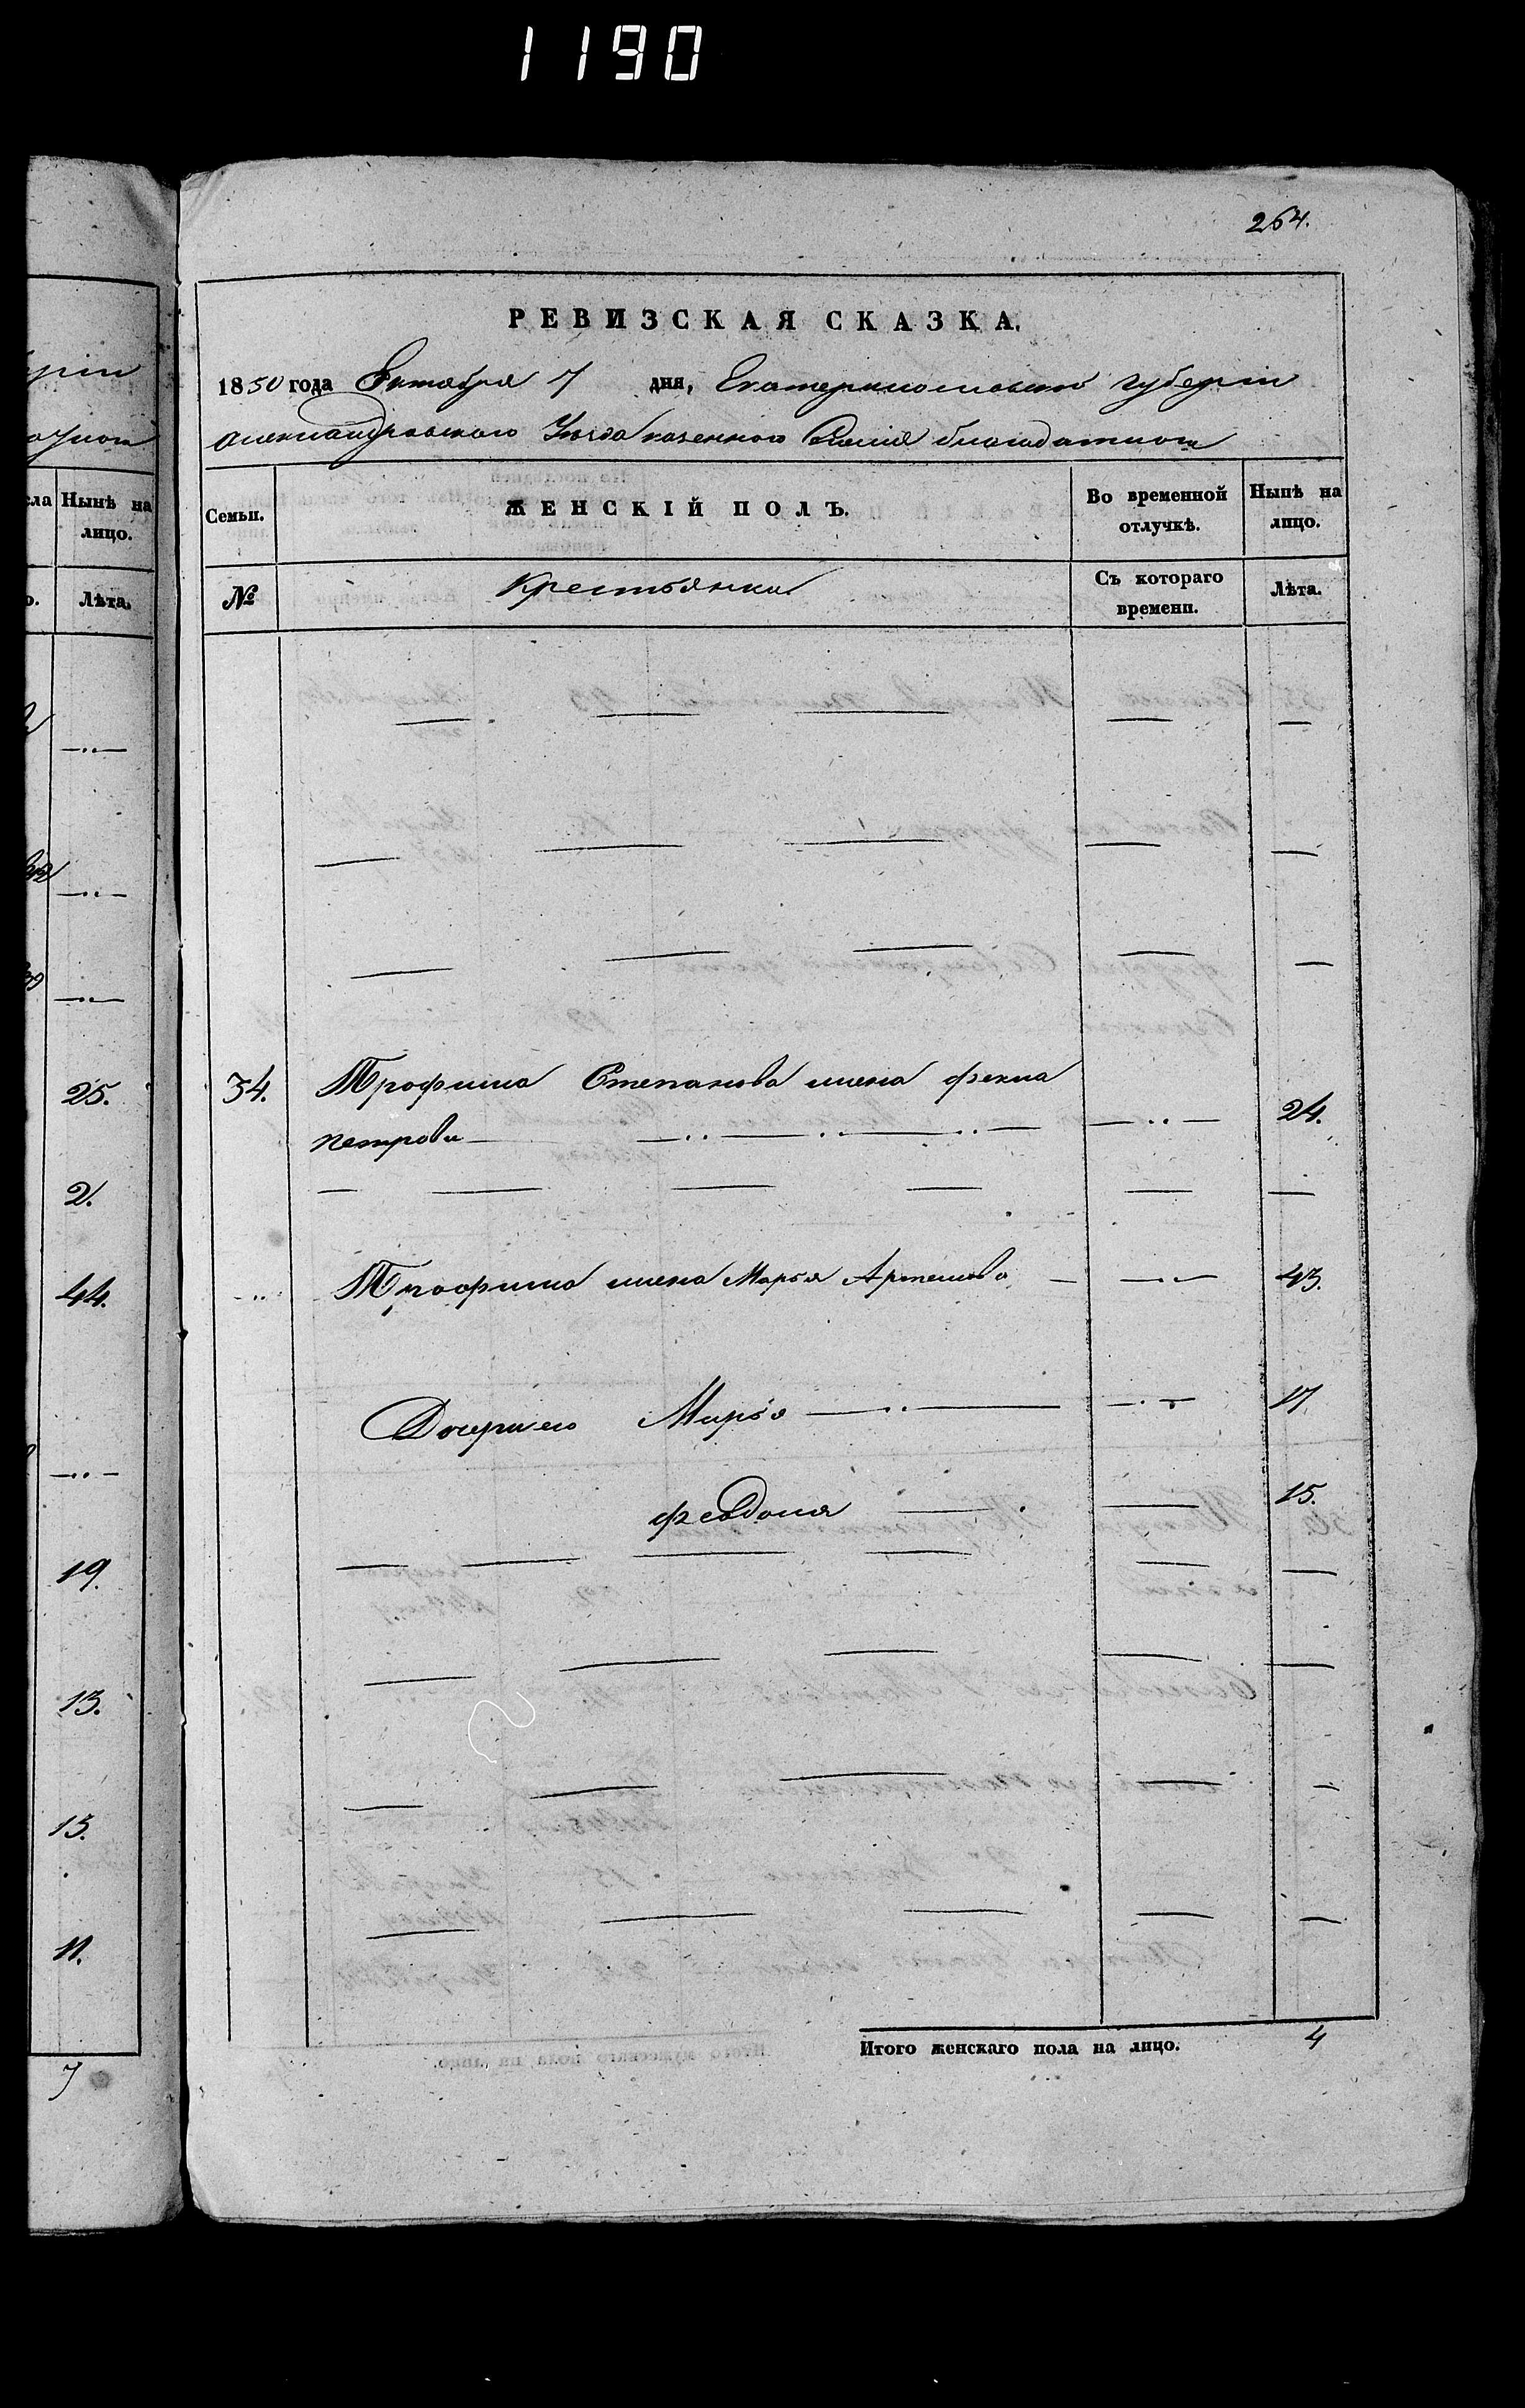 1190
264.
РЕВИЗСКАЯ СКАЗКА.
1850 года Октября 7 дня, Екатеринославской губерніи
Александровского Уезда казенного Селенія благодатного
сла Нынѣ на лицо.
Лѣта.
25.
2.
44.
19.
13.
13.
11.
7
Семьи. ЖЕНСКІЙ ПОЛЪ. Во временной отлучкѣ. Нынѣ на лицо.
№ Крестьянки Съ котораго времени. Лѣта.
34. Трофима Степанова жена Фекла
Петрова 24.
Трофима жена Марья Артемова 43.
Дочери его Марья 17
Февдосия 15.
Итого женскаго пола на лицо. 4